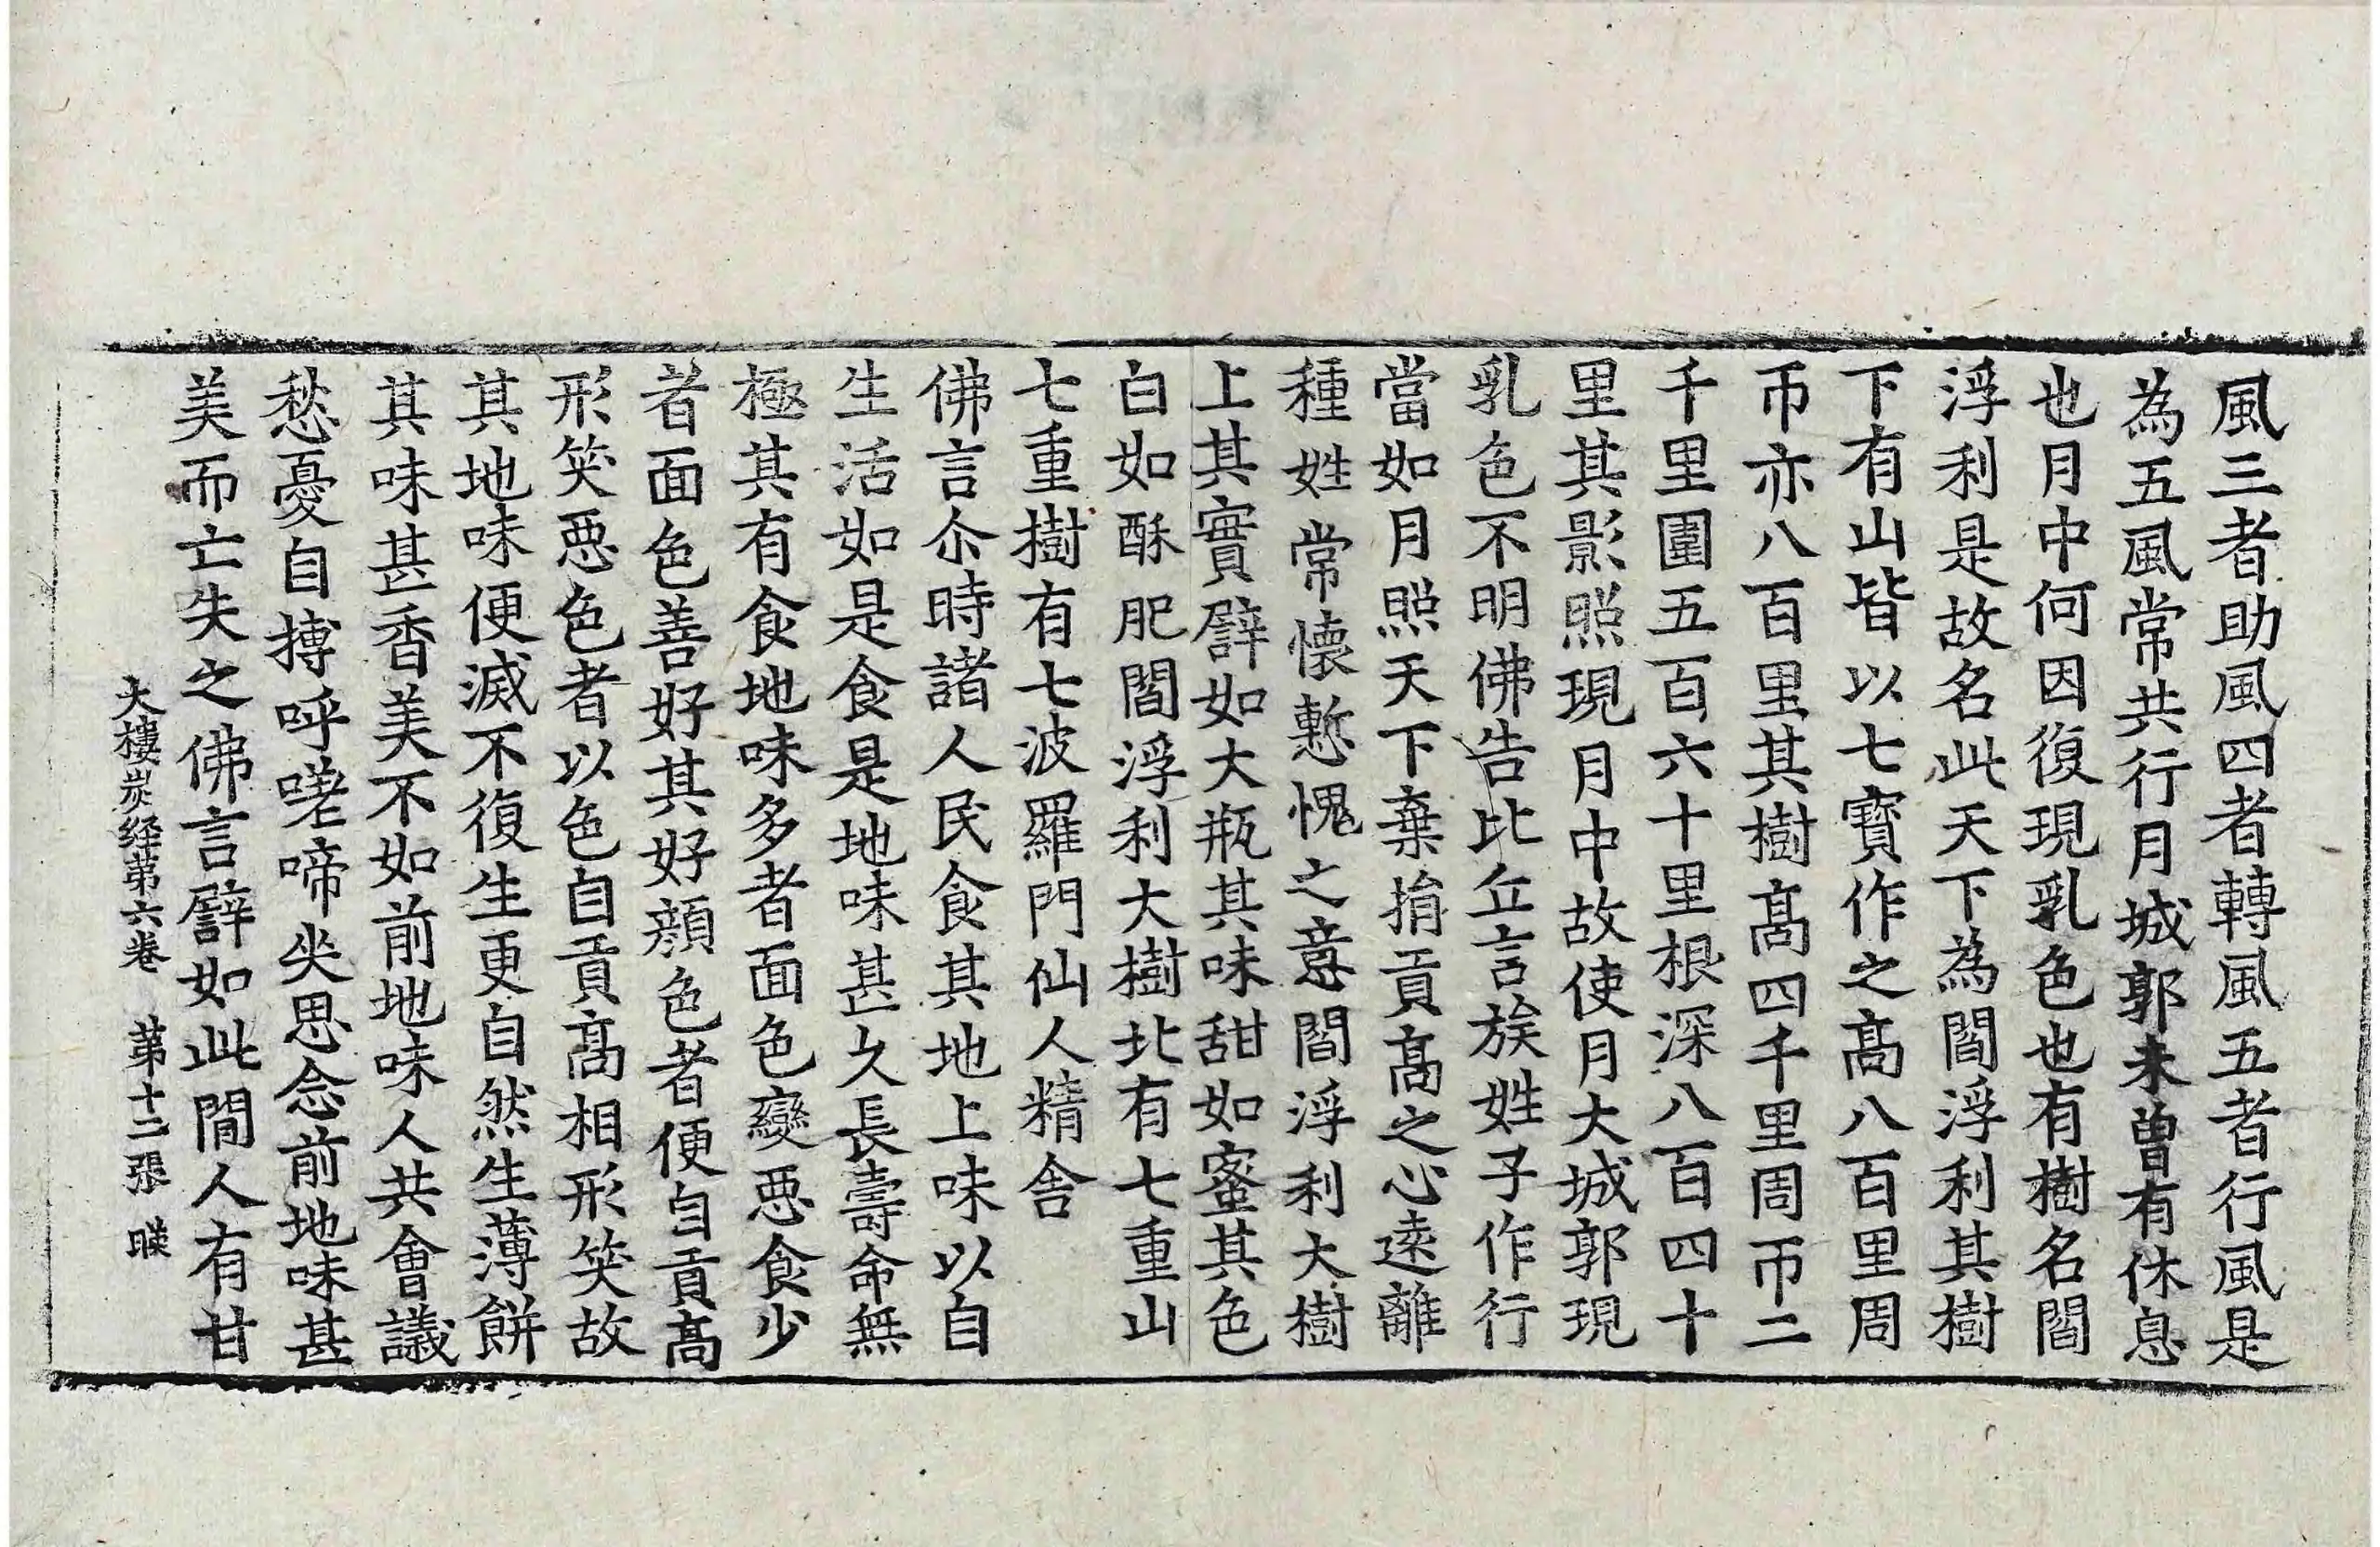 風三者助風四者轉風五者行風是
為五風常共行月城郭未曾有休息
也月中何因復現乳色也有樹名閻
浮利是故名此天下為閻浮利其樹
下有山皆以七寶作之髙八百里周
帀亦八百里其樹髙四千里周帀二
千里圍五百六十里根深八百四十
里其影照現月中故使月大城郭現
乳色不明佛告比丘言族姓子作行
當如月照天下棄捐貢髙之心遠離
種姓常懷慙愧之意閻浮利大樹
上其實譬如大瓶其味甜如蜜其色
白如酥肥閻浮利大樹北有七重山
七重樹有七波羅門仙人精舍
佛言尒時諸人民食其地上味以自
生活如是食是地味甚久長壽命無
極其有食地味多者面色變惡食少
者面色善好其好顔色者便自貢髙
形笑惡色者以色自貢髙相形笑故
其地味便滅不復生更自然生薄餅
其味甚香美不如前地味人共會議
愁憂自搏呼嗟啼坐思念前地味甚
美而亡失之佛言譬如此閒人有甘
大樓炭経苐六卷　苐十二張